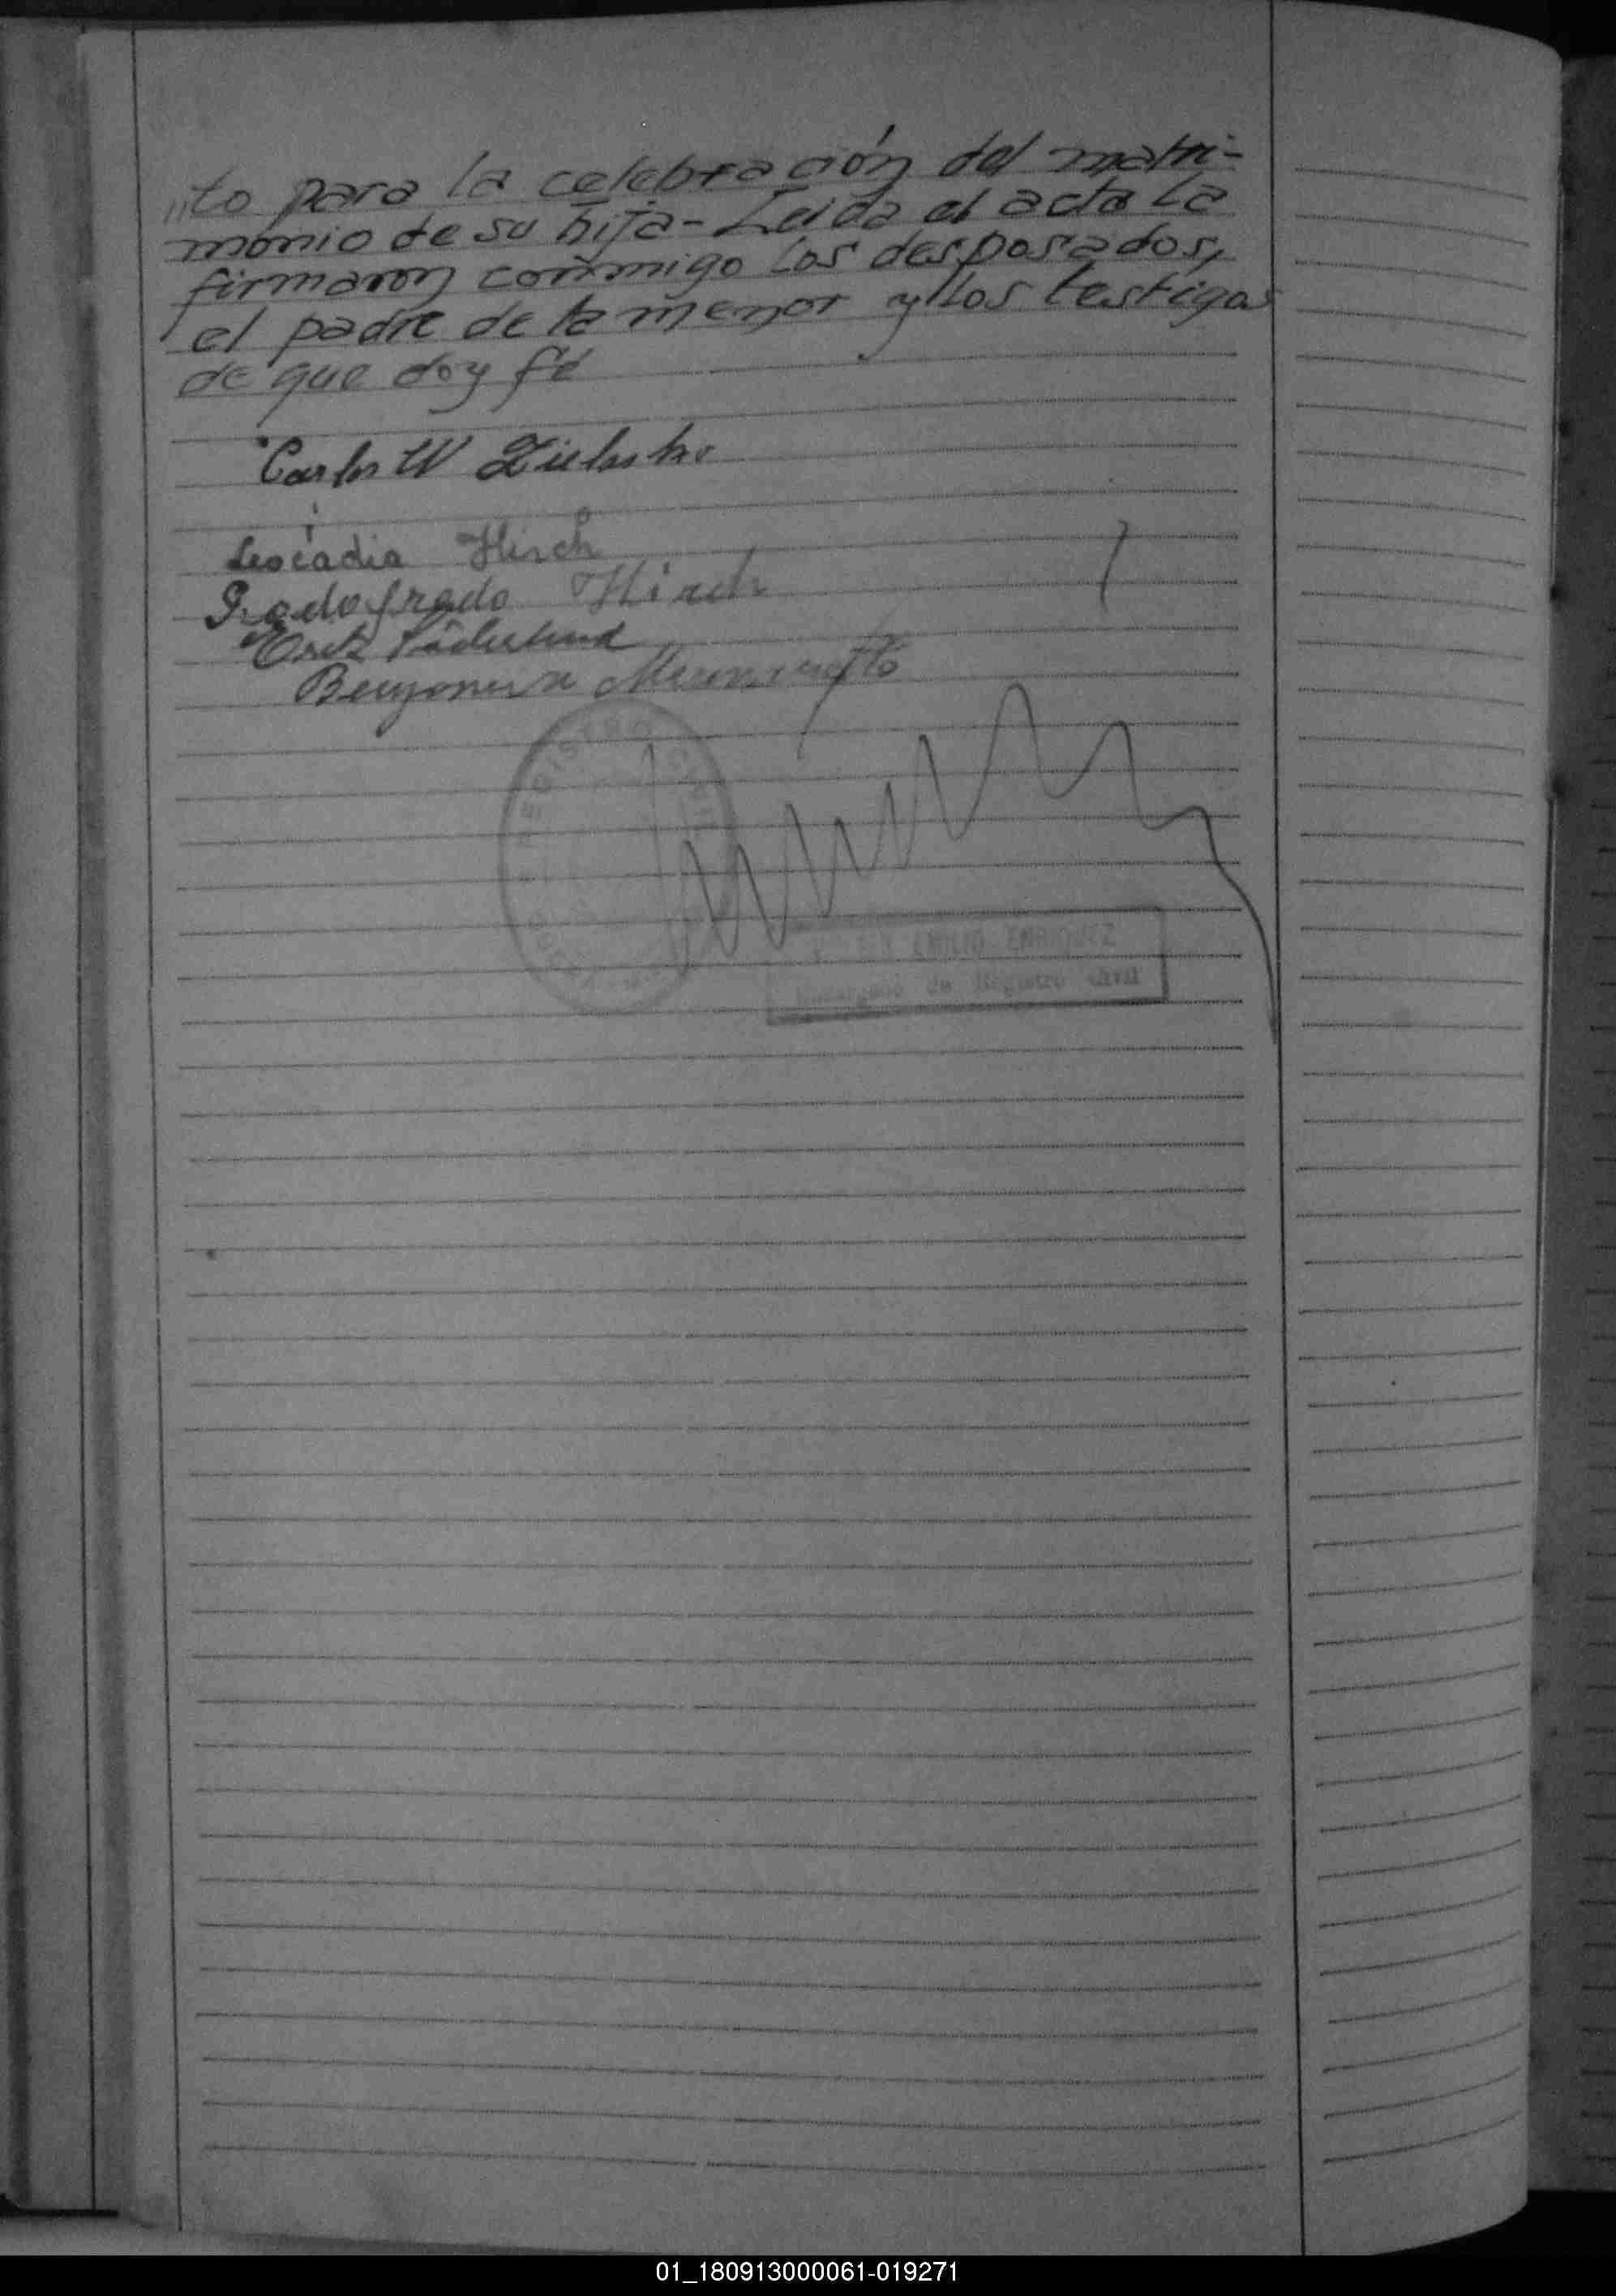 „to para la celebración del matri-
monio de su hija - Leida el acta La
firmaron conmigo los desposados,
el padre de la menor y los testigos
de que doy fé
Carlos W Zielaskо
Leocadia Hirch
Godofredo Hirch
REGISTRO CIVIL
EMILIO ENRIQUEZ
Encargado de Registro Civil
01_180913000061-019271